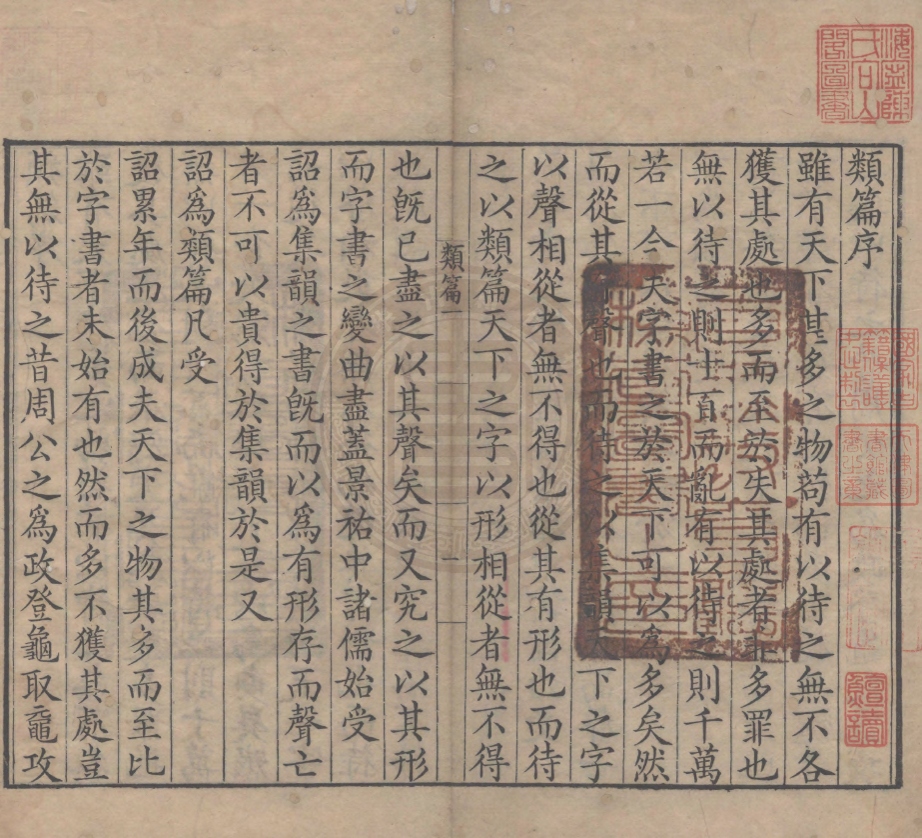 類篇序
雖有天下甚多之物苟有以待之無不各
獲其處也多而至於失其處者非多罪也
無以待之則十百而亂有以待之則千萬
若一今夫字書之於天下可以為多矣然
而從其有聲也而待之以集韻天下之字
以聲相從者無不得也從其有形也而待
之以類篇天下之字以形相從者無不得
類篇一
一
也旣已盡之以其聲矣而又究之以其形
而字書之變曲盡蓋景祐中諸儒始受
詔爲集韻之書旣而以爲有形存而聲亡
者不可以貴得於集韻於是又
詔爲類篇凡受
詔累年而後成夫天下之物其多而至比
於字書者未始有也然而多不獲其處豈
其無以待之昔周公之爲政登龜取黿攻